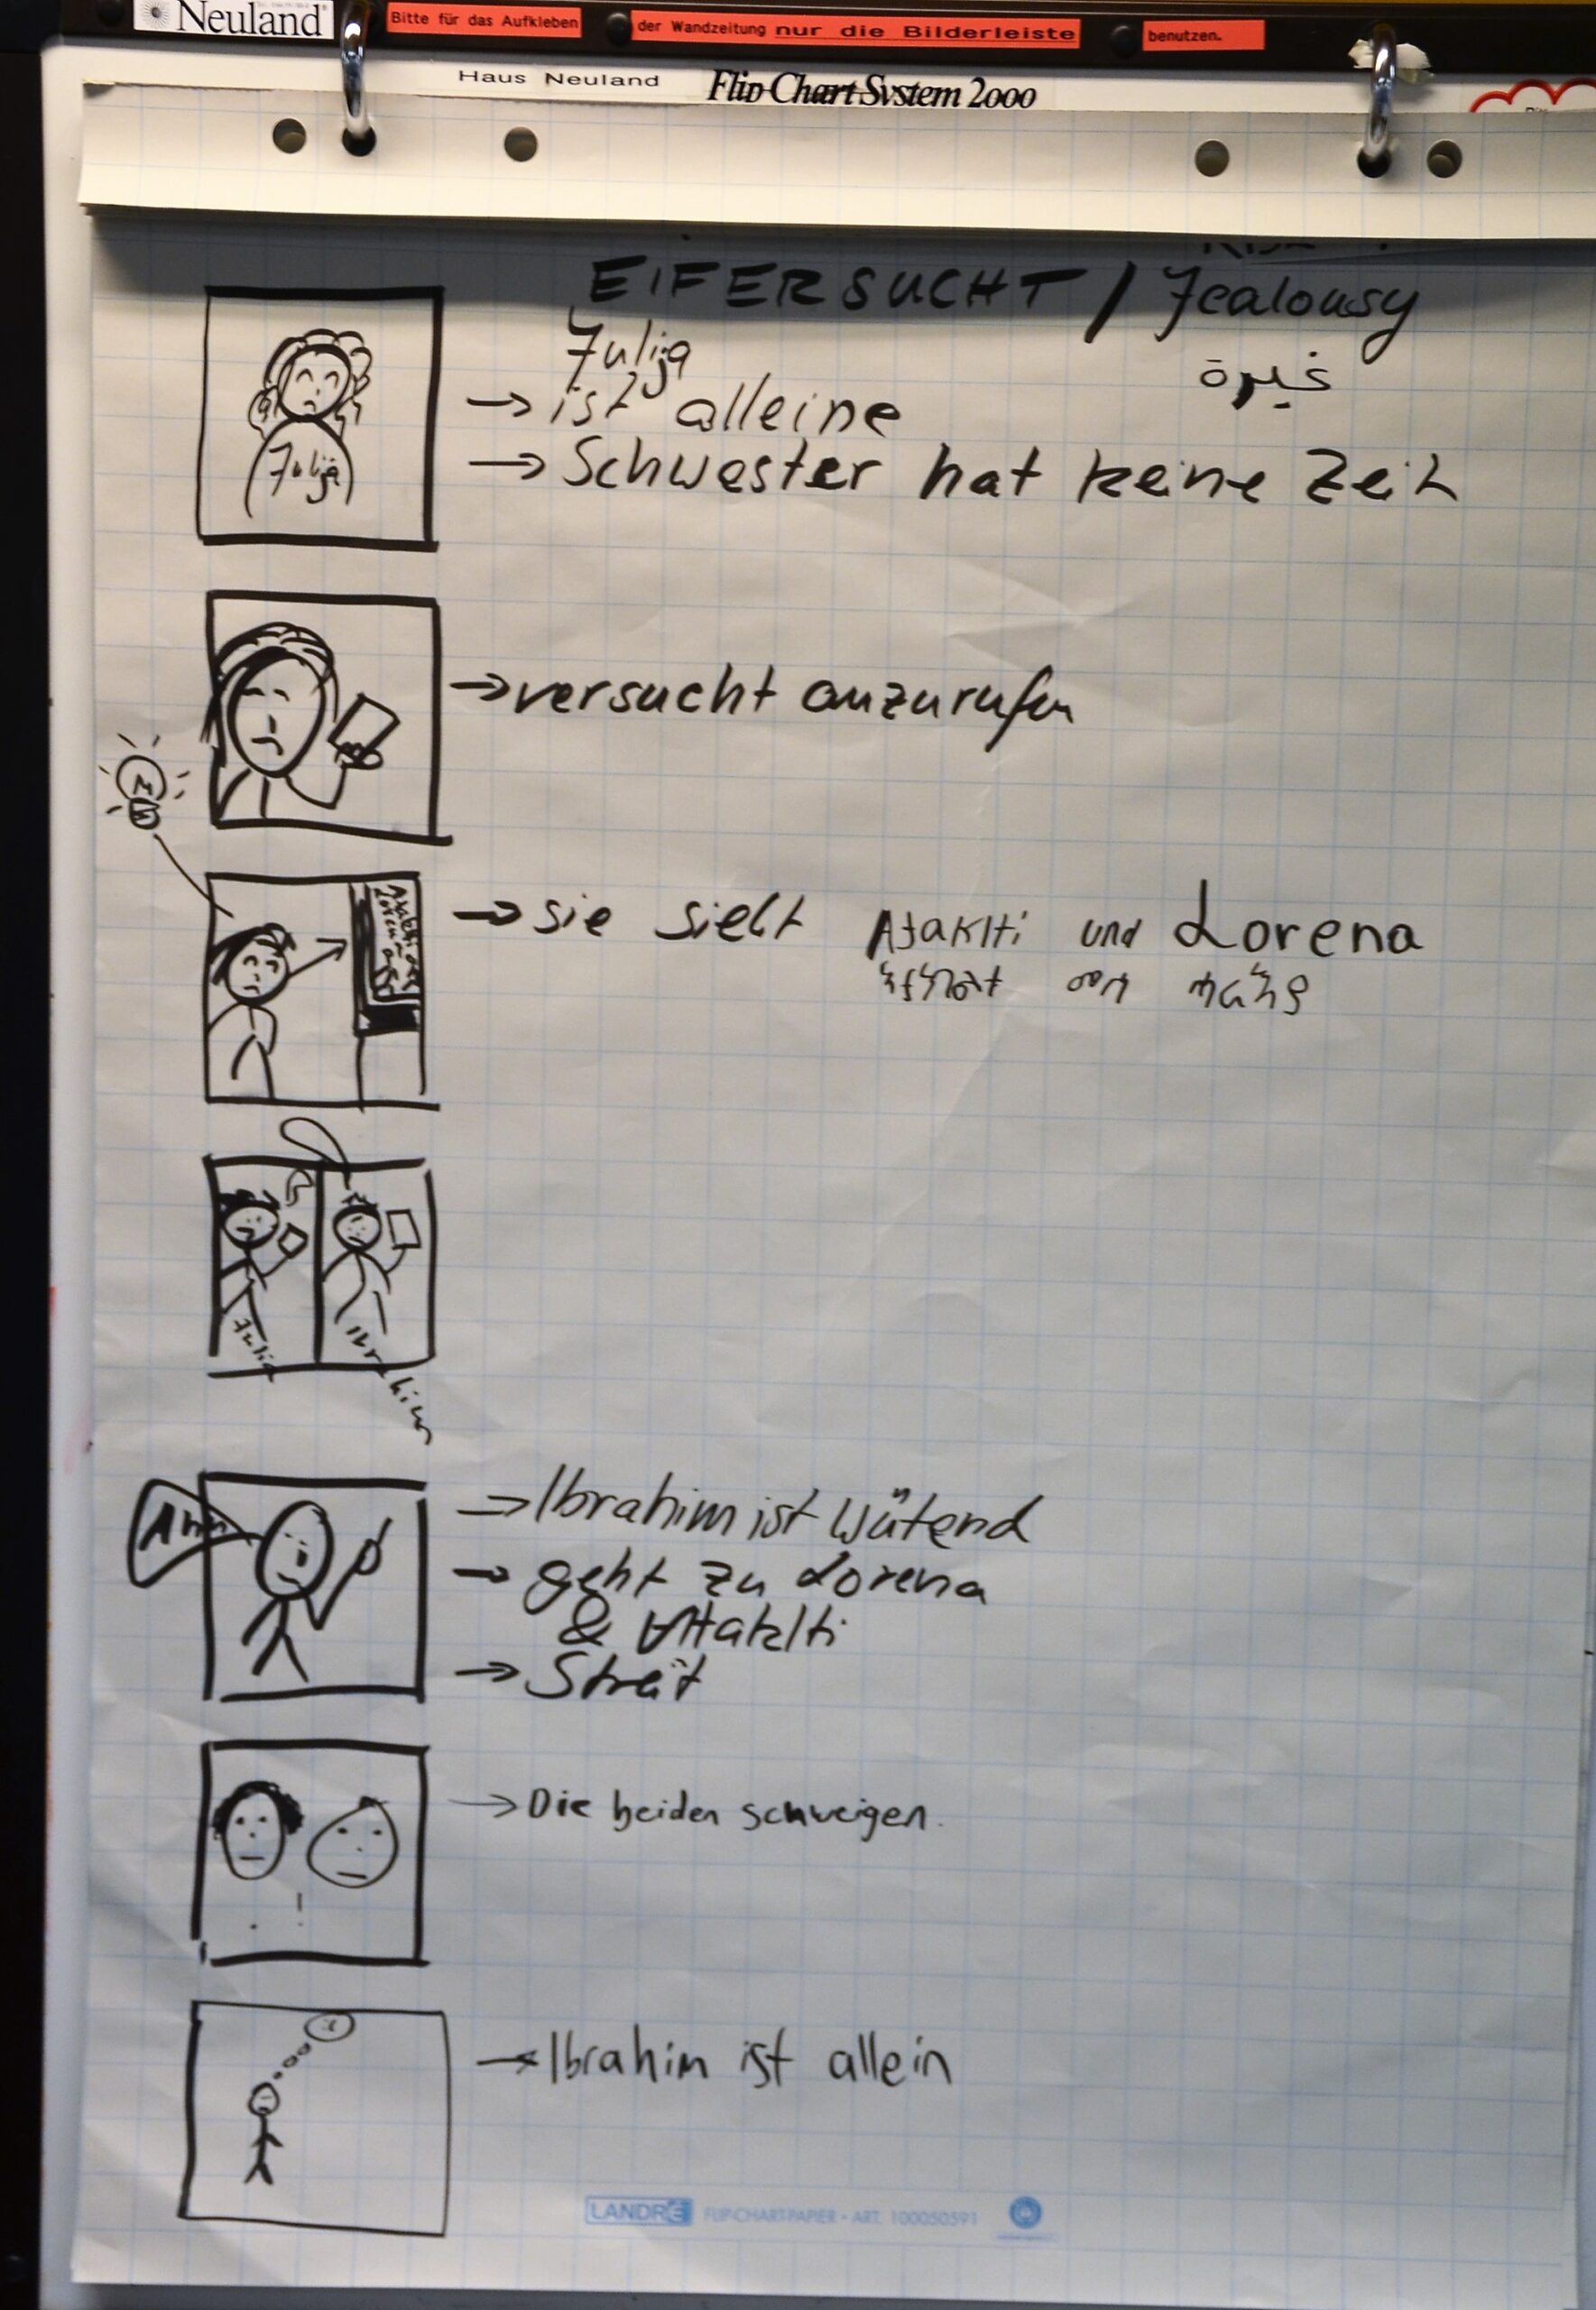 Neuland
Bitte für das Aufkleben der Wandzeitung nur die Bilderleiste benutzen.
Haus Neuland Flip Chart System 2000
EIFERSUCHT / Jealousy
غيرة
Julija
→ ist alleine
→ Schwester hat keine Zeit
Julija
→ versucht anzurufen
→ sie sieht Ataklti und Lorena
Julia
Ibrahim
→ Ibrahim ist wütend
→ geht zu Lorena
& Attaklti
→ Streit
→ Die beiden schweigen.
→ Ibrahim ist allein
LANDRÉ FLIP-CHART-PAPIER - ART. 100050591